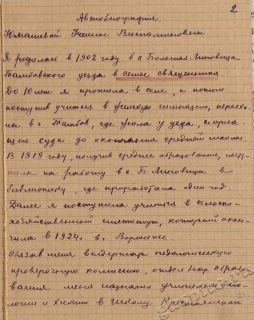 2
Автобиография
Юмашевой Фаины Вениаминовны
Я родилась в 1902 году в с. Большая Липовица
Тамбовского уезда в семье священника
До 10 лет я прожила в селе, а потом
поступив учиться в женскую гимназию, переех
ла в г. Тамбов, где жила у деда,
суда до окончания средней школы
В 1919 году, получив среднее образование, посту
пила на работу в с. Б. Липовица в
библиотеку, где проработала один год
Далее я поступила учиться в сельско-
хозяйственный институт, который окон
чила в 1924 г. в г. Воронеже
меня выдержать педагогическую
проверочную комиссию, отдел Нар. образо
вания меня назначил учителем био
логии и химии в школу Крестьянской